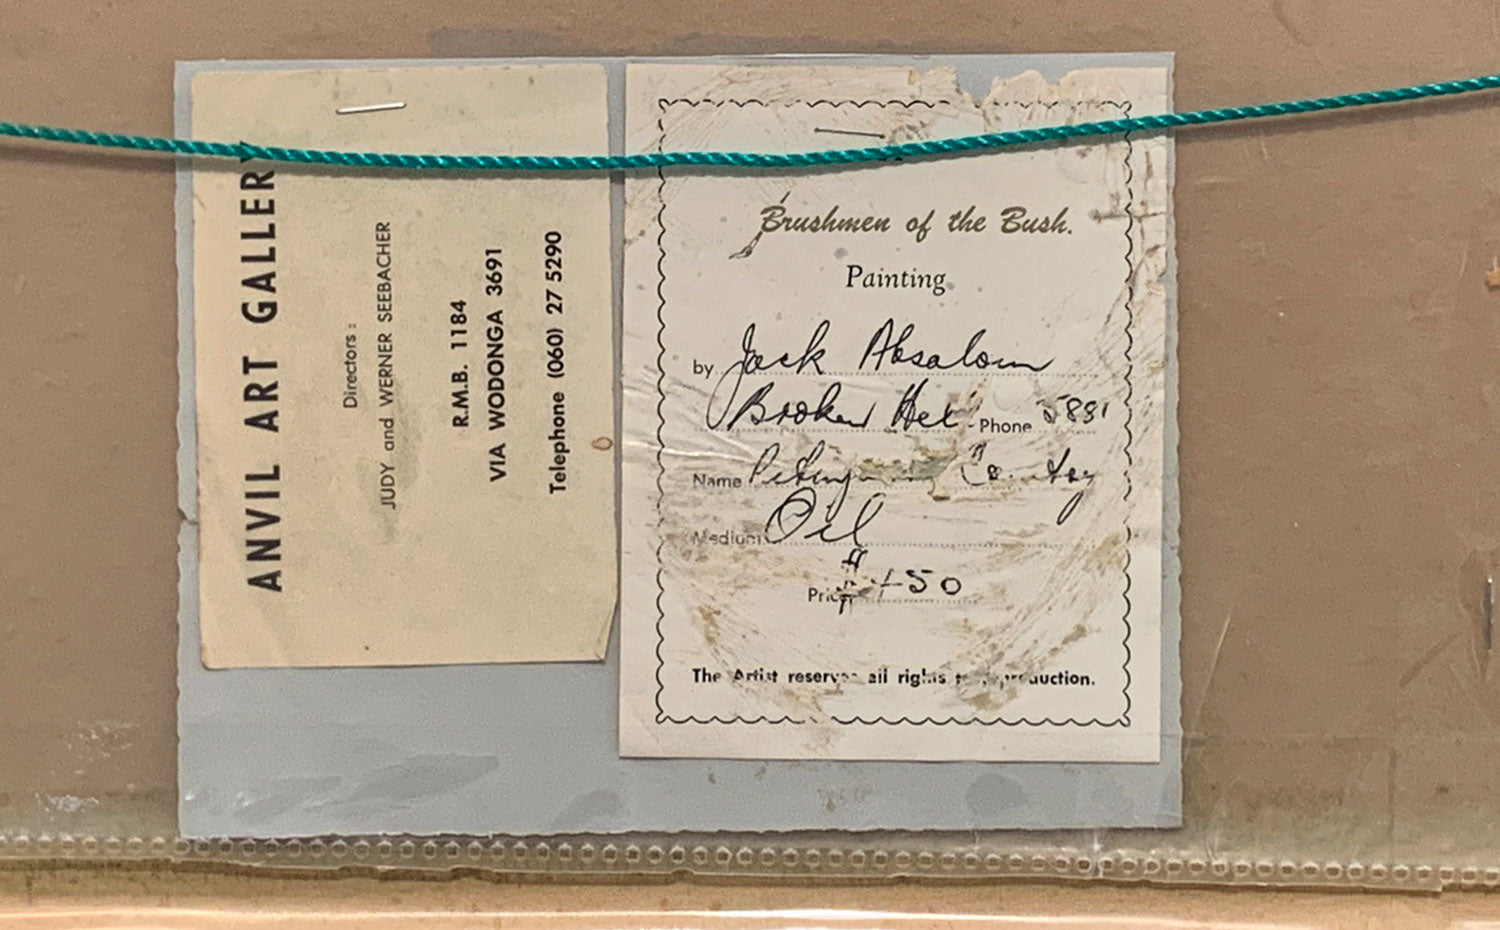 ANVIL ART GALLERY
Directors :
JUDY and WERNER SEEBACHER
R.M.B. 1184
VIA WODONGA 3691
Telephone (060) 27 5290
Brushmen of the Bush.
Painting
by Jack Absalom
Broken Hill Phone 5881
Name Country
Medium Oil
Price $ 450
The Artist reserves all rights reproduction.